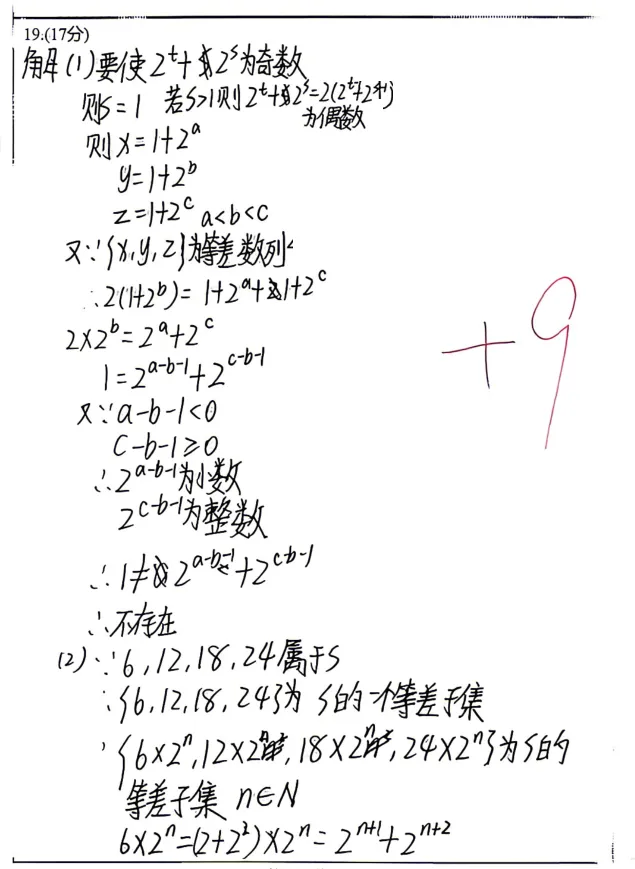 19.(17分)
解(1)要使2^t+2^s为奇数
则s=1 若s>1则2^t+2^s=2(2^t+2^{s-1})
为偶数
则x=1+2^a
y=1+2^b
z=1+2^c a<b<c
又∵{x,y,z}为等差数列
∴2(1+2^b)=1+2^a+1+2^c
2×2^b=2^a+2^c
1=2^{a-b-1}+2^{c-b-1}
又∵a-b-1<0
c-b-1≥0
∴2^{a-b-1}为小数
2^{c-b-1}为整数
∴1≠2^{a-b-1}+2^{c-b-1}
∴不存在
+9
(2)∵6,12,18,24属于S
∴{6,12,18,24}为S的一个等差子集
{6×2^n,12×2^n,18×2^n,24×2^n}为S的
等差子集 n∈N
6×2^n=(2+2^2)×2^n=2^{n+1}+2^{n+2}